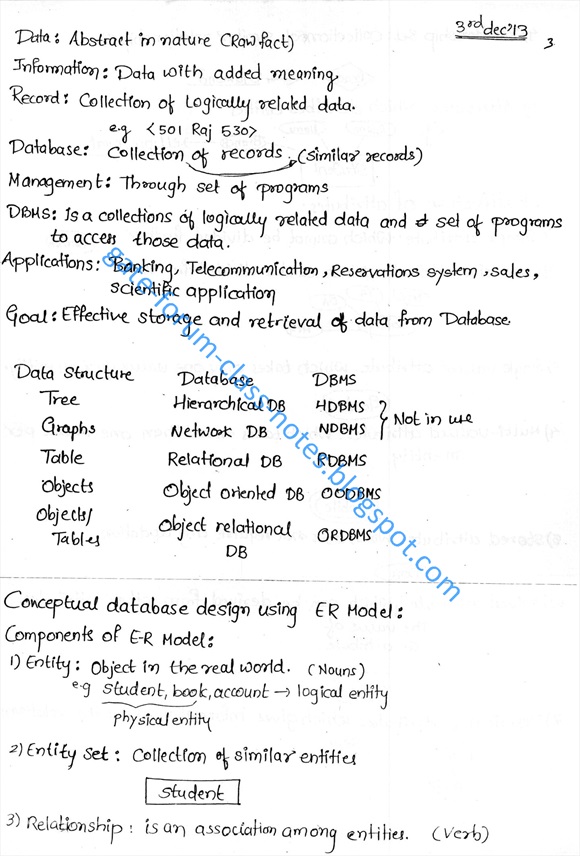 3rd dec'13 3
Data: Abstract in nature (Raw fact)
Information: Data with added meaning
Record: Collection of Logically related data.
e.g <501 Raj 530>
Database: Collection of records. (similar records)
Management: Through set of programs
DBMS: Is a collections of logically related data and set of programs
to access those data.
Applications: Banking, Telecommunication, Reservations system, sales,
scientific application
Goal: Effective storage and retrieval of data from Database
Data Structure Database DBMS
Tree Hierarchical DB HDBMS
Graphs Network DB NDBMS
Not in use
Table Relational DB RDBMS
Objects Object oriented DB OODBMS
Objects/
Tables Object relational
DB ORDBMS
gate-forum-class-notes.blogspot.com
Conceptual database design using ER Model:
Components of E-R Model:
1) Entity: Object in the real world. (Nouns)
e.g student, book, account → logical entity
physical entity
2) Entity set: Collection of similar entities
Student
3) Relationship: is an association among entities. (Verb)